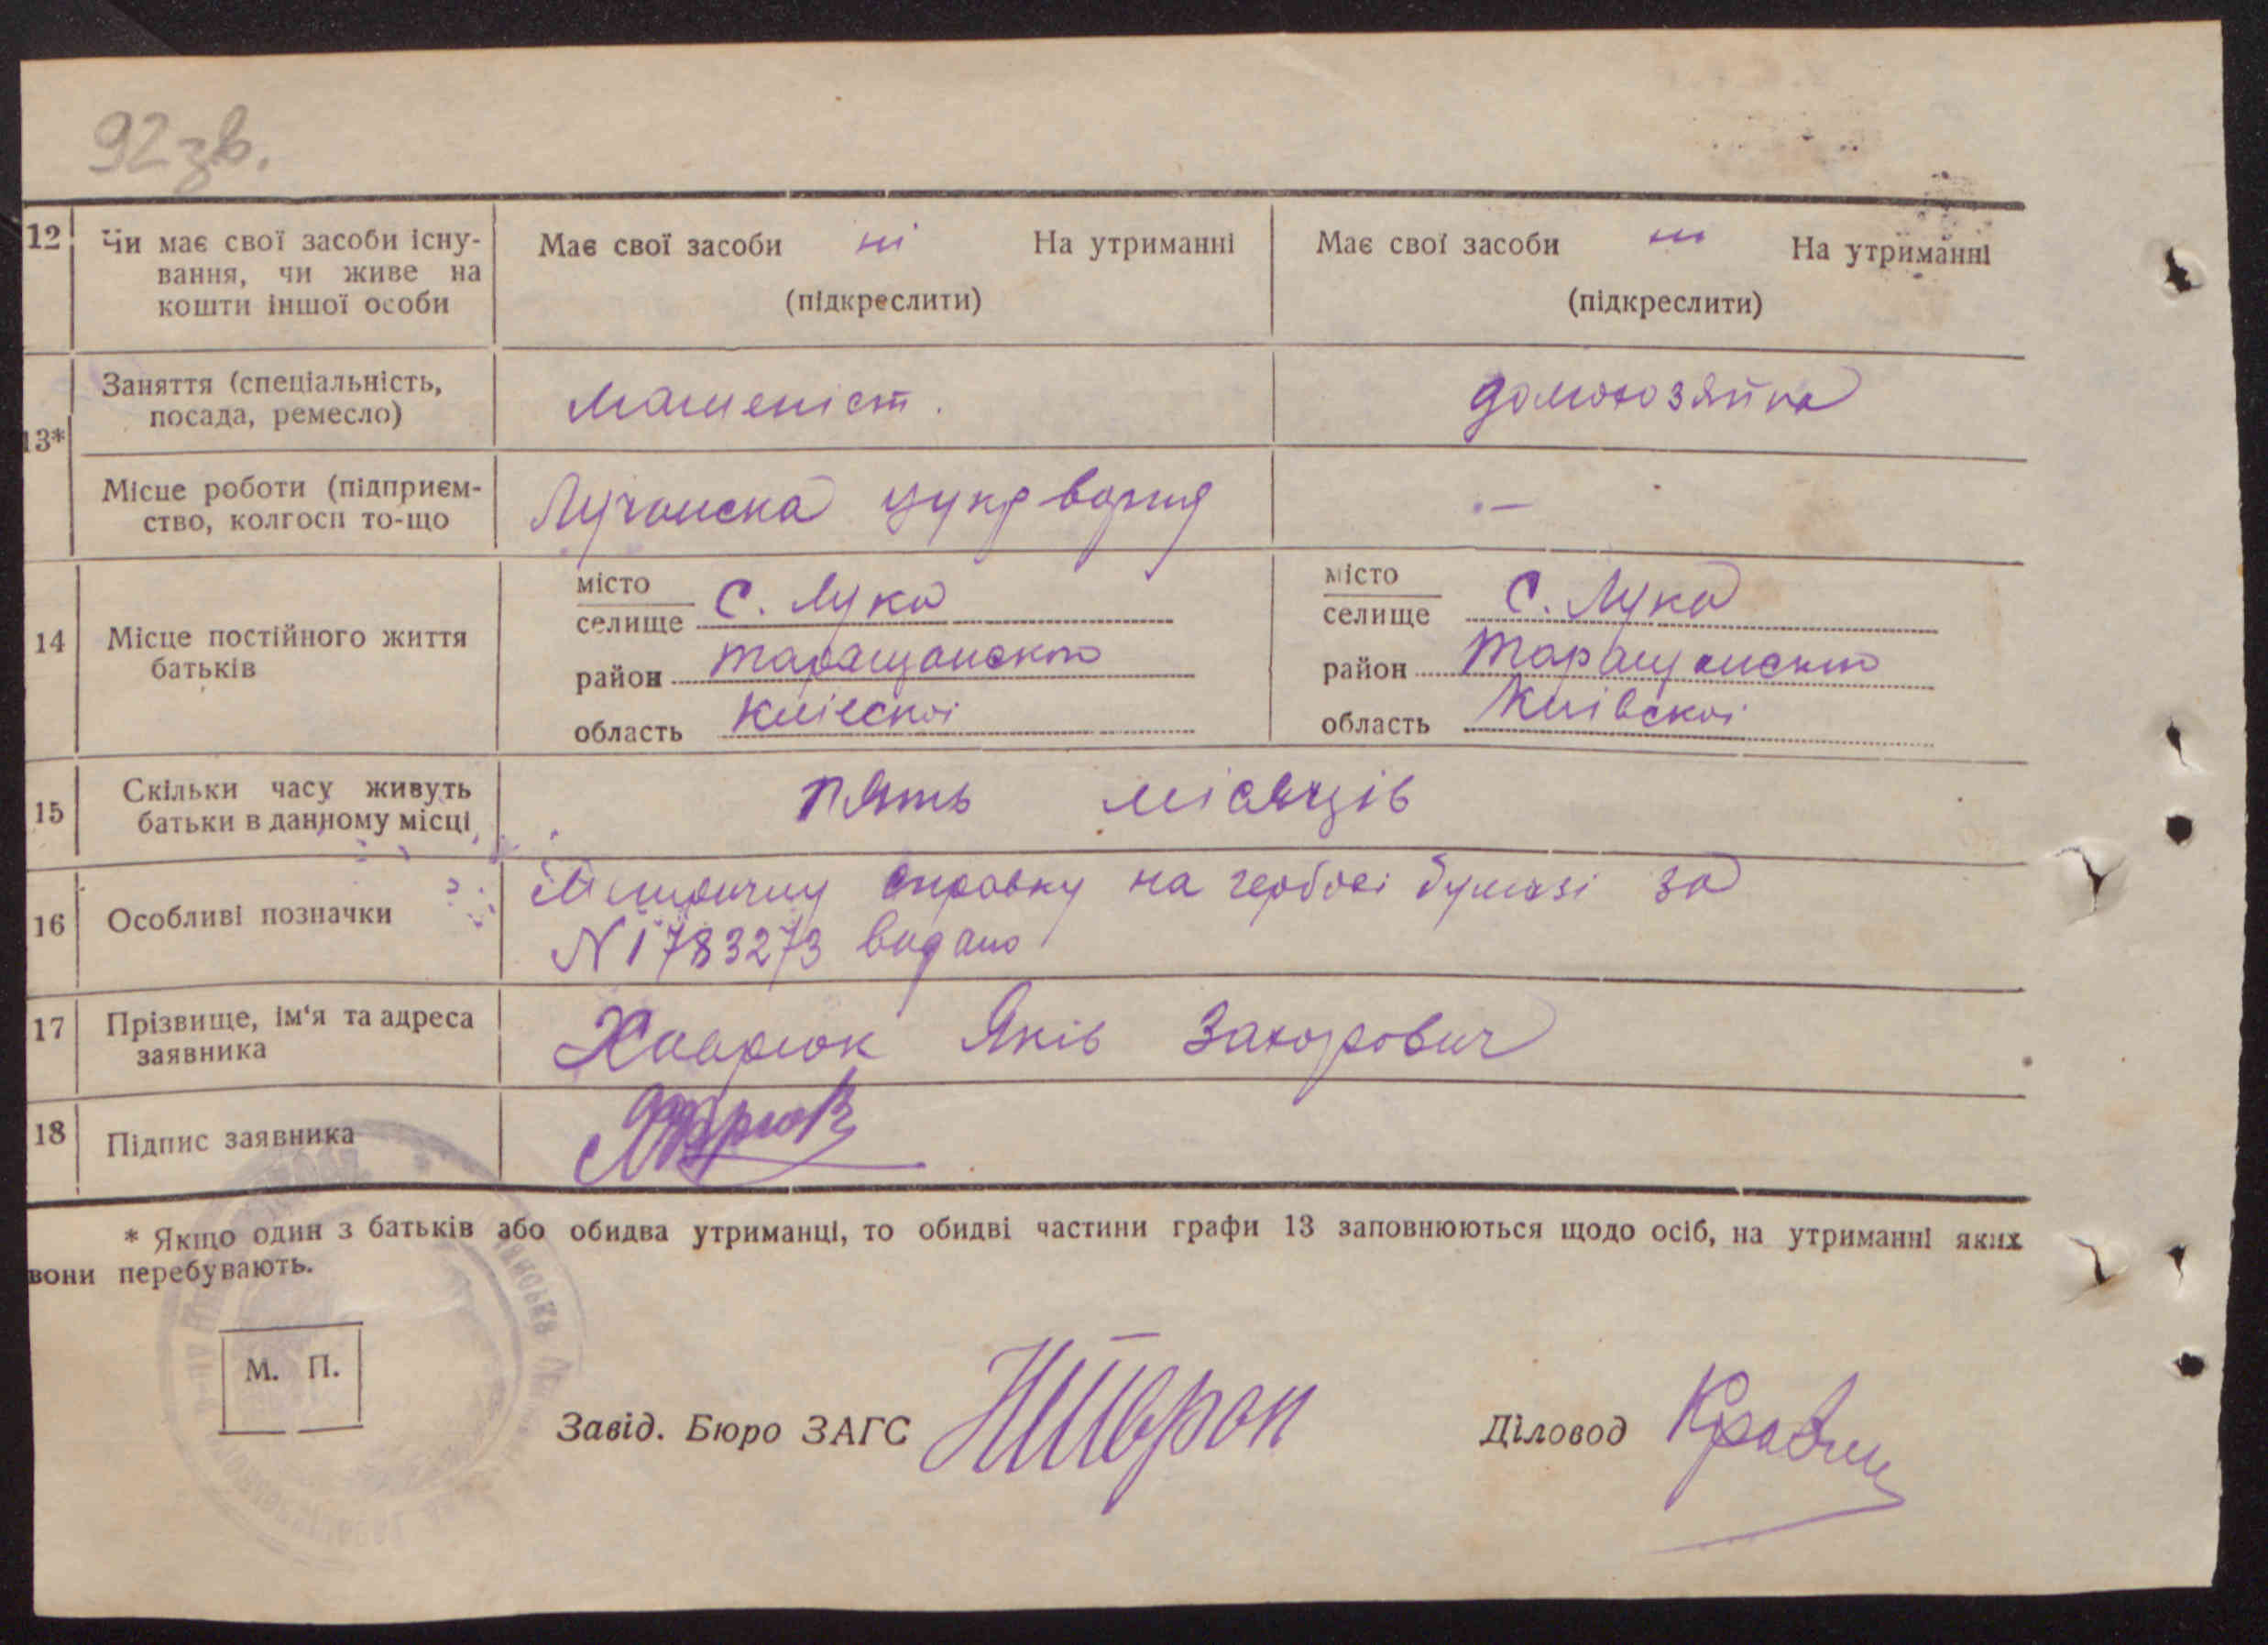 92 зв.
12 Чи має свої засоби існу- Має свої засоби ні На утриманні Має свої засоби ні На утриманні
вання, чи живе на
кошти іншої особи (підкреслити) (підкреслити)
Заняття (спеціальність, машеніст. домохозяйка
посада, ремесло)
13*
Місце роботи (підприєм- Лучанска цукрварня –
ство, колгосп то-що
місто місто
14 Місце постійного життя селище С. Лука селище С. Лука
батьків район Таращанского район Таращанского
область Київскої область Київскої
15 Скільки часу живуть пять місяців
батьки в данному місці
16 Особливі позначки Метричну справку на гербові бумазі за
N 1783273 видано
17 Прізвище, ім'я та адреса Хаврюк Яків Захорович
заявника
18 Підпис заявника
* Якщо один з батьків або обидва утриманці, то обидві частини графи 13 заповнюються щодо осіб, на утриманні яких
вони перебувають.
М. П.
Завід. Бюро ЗАГС Діловод